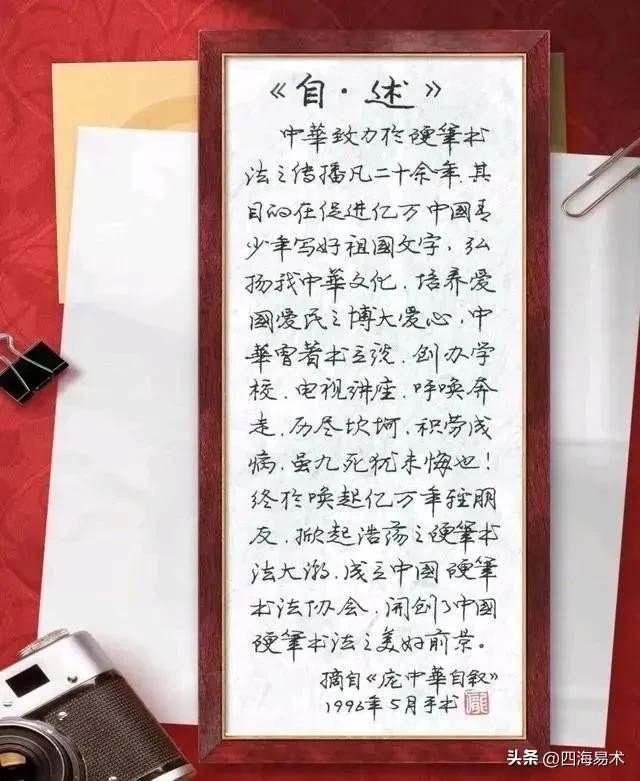 《自·述》
中華致力於硬筆书
法之传播凡二十余年,其
目的在促进亿万中國青
少年写好祖國文字,弘
扬我中華文化,培养爱
國爱民之博大爱心,中
華曾著书立说,创办学
校,电视讲座,呼唤奔
走,历尽坎坷,积劳成
病,虽九死犹未悔也!
终於唤起亿万年轻朋
友,掀起浩荡之硬筆书
法大潮,成立中國硬筆
书法协会,開创了中國
硬筆书法之美好前景。
摘自《庞中華自叙》
1996年5月手书
龐
头条 @四海易术